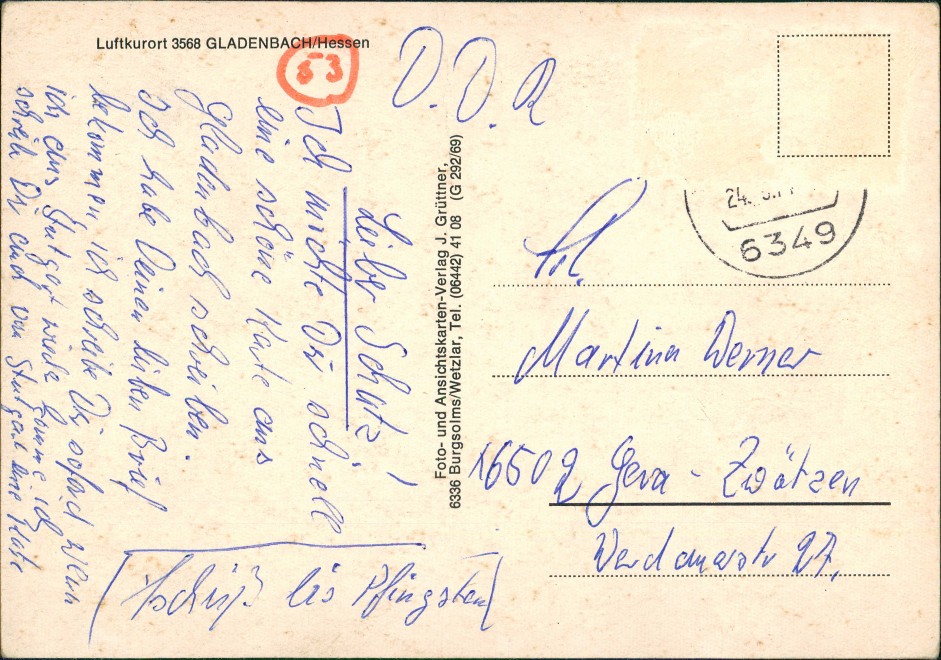 Luftkurort 3568 GLADENBACH/Hessen
53
D.D.R
Lieber Schatz!
Ich möchte Dir schnell
eine schöne Karte aus
Gladenbach schreiben.
Ich habe Deinen lieben Brief
bekommen ich schreibe Dir soford wenn
ich aus Stutgart wieder komme ich
schreib Dir auch von Stutgart eine Karte
Tschüß bis Pfingsten
Foto- und Ansichtskarten-Verlag J. Grüttner,
6336 Burgsolms/Wetzlar, Tel. (06442) 41 08 (G 292/69)
24.
6349
Frl.
Martina Werner
6502 Gera - Zwötzen
27.